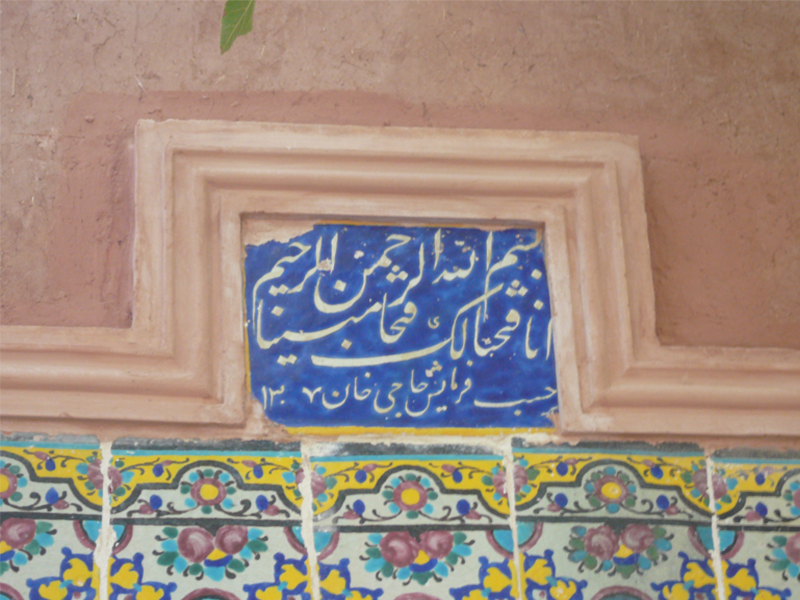 بسم الله الرحمن الرحيم
انا فتحنا لک فتحا مبينا
حسب فرمایش حاجی خان ۱۳۰۷